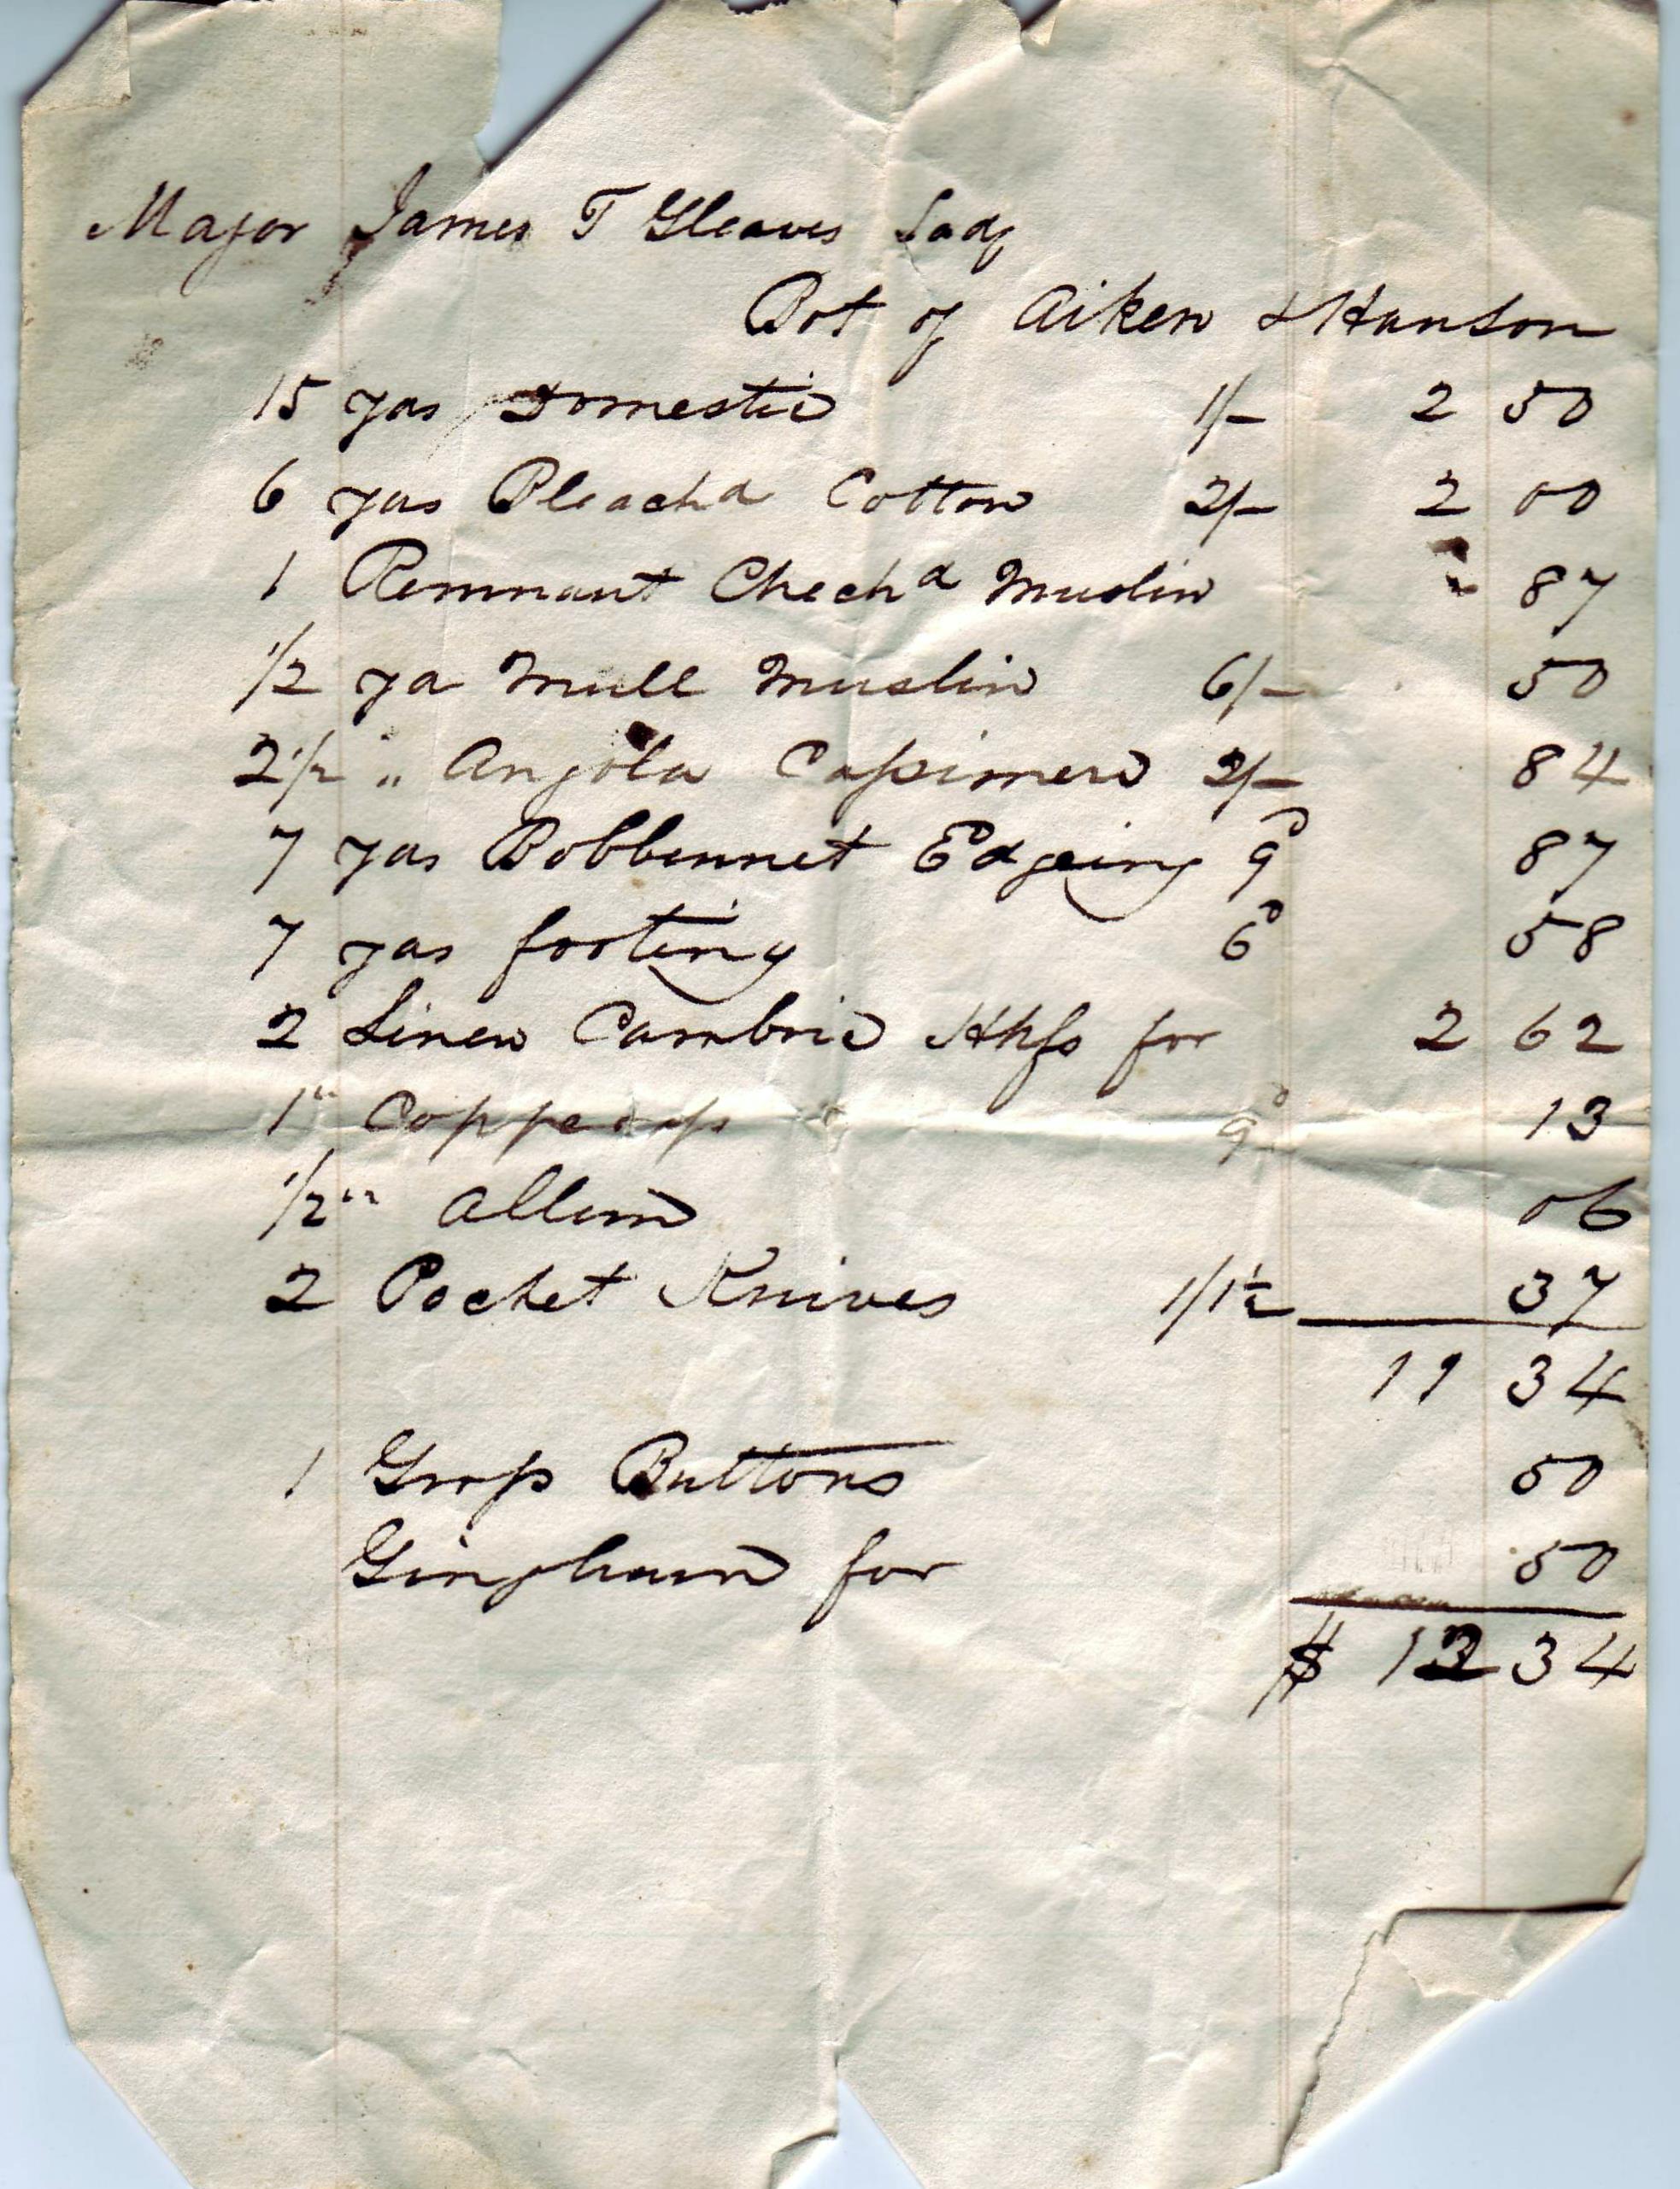 Major James T Gleaves Lady
Bot of Aiken & Hanson
15 yds Domestic 1/- 2 50
6 yds Bleachd Cotton 2/- 2 00
1 Remnant Checkd Muslin 87
1/2 yd Mull Muslin 6/- 50
2 1/2 " Angola Cassimere 2/- 84
7 yds Bobbennet Edgeing 9d 87
7 yds footing 6d 58
2 Linen Cambric Hkfs for 2 62
1 " Copperass 9d 13
1/2 " Allum 06
2 Pocket Knives 1/1½ 37
11 34
1 Gross Buttons 50
Gingham for 50
$ 12 34